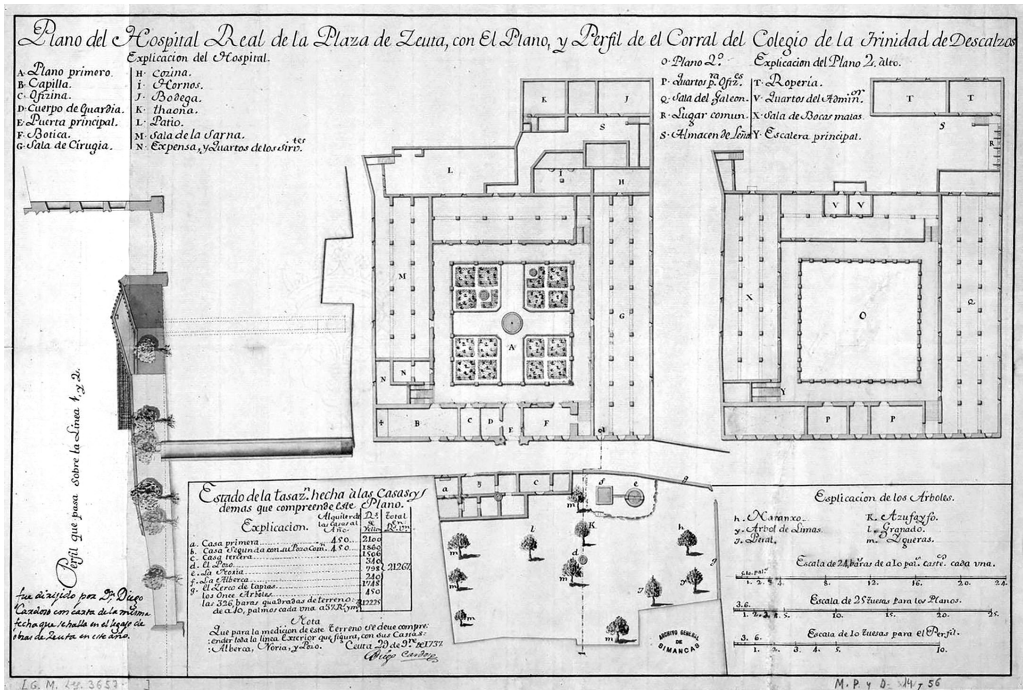 Plano del Hospital Real de la Plaza de Zeuta, con El Plano, y Perfil de el Corral del Colegio de la Trinidad de Descalzos
Explicacion del Hospital.
A. Plano primero.
B. Capilla.
C. Ofizina.
D. Cuerpo de Guardia.
E. Puerta principal.
F. Botica.
G. Sala de Cirugia.
H. Cozina.
I. Hornos.
J. Bodega.
K. thaona.
L. Patio.
M. Sala de la Sarna.
N. Expensa, y Quartos de los Sirv.tes
O. Plano 2º.
P. Quartos p.ra Ofiz.es
Q. Sala del Galeon.
R. Lugar comun.
S. Almacen de Leña
Explicacion del Plano 2. alto.
T. Roperia.
V. Quartos del Admin.or
X. Sala de Bocas malas.
Y. Escalera principal.
K
J
S
L
I
H
M
G
A
N
N
B
C
D
E
F
T
T
S
R
V
V
X
O
Q
Y
P
P
Perfil que pasa sobre la Linea 1, y 2.
fue dirijido por Dn. Diego
Cardoso con carta de la misma
fecha que se halla en el legajo de
obras de Zeuta en este año.
Estado de la tasaz.n hecha à las Casas y
demas que comprende este Plano.
Explicacion.
Alquiler de
las casas al
Año.
total
a. Casa primera 450. 2100
b. Casa Segunda con su Pozo Com.n 450. 1860
c. Casa tercera 1506
d. El Pozo 340
e. La Noria
f. La Alberca 240
g. El Zerco de tapias
los Once Arboles 450
las 326, baras quadradas de terreno
Nota
Que para la medicion de este Terreno se deve compre:
:ender toda la linea Exterior que figura, con sus Casas:
:Alberca, Noria, y Pozo. Ceuta 29 de 9.re de 1737.
Diego Cardoso
a
b
c
f
e
l
K
h
m
d
m
m
m
Esplicacion de los Arboles.
h. Naranxo.
y. Arbol de Limas.
J. Peral.
K. Azufayfo.
l. Granado.
m. Ygueras.
Escala de 24, baras de a 10 pal. caste. cada vna.
1. 2. 3. 4. 8. 12. 16. 20. 24.
Escala de 25 tuesas para los Planos.
3. 6.
1. 2. 3. 4. 5. 10. 15. 20. 25.
Escala de 10 tuesas para el Perfil.
3. 6.
1. 2. 3. 4. 5. 10.
ARCHIVO GENERAL
DE
SIMANCAS
[G. M. Leg. 3657.]
M. P. y D. 14 y 56